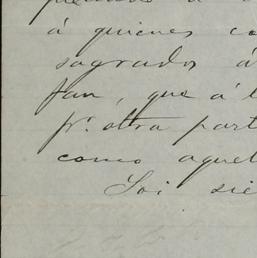 á quienes co
sagrados á
fan, que á l
pr. otra part
como aquel
Soi sie